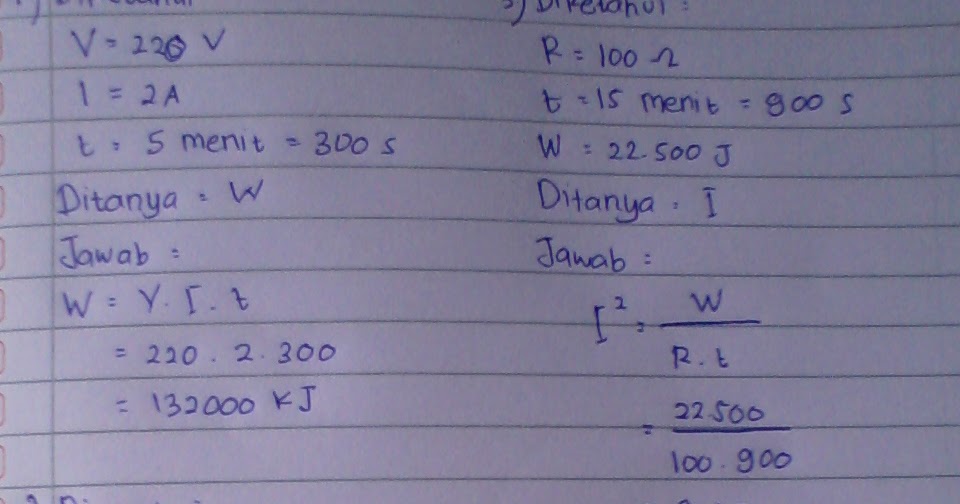 V = 220 V
I = 2 A
t = 5 menit = 300 s
Ditanya = W
Jawab :
W = V. I. t
= 220 . 2 . 300
= 132000 KJ
Diketahui :
R = 100 Ω
t = 15 menit = 900 s
W = 22.500 J
Ditanya = I
Jawab :
I² = W
R . t
= 22.500
100 . 900